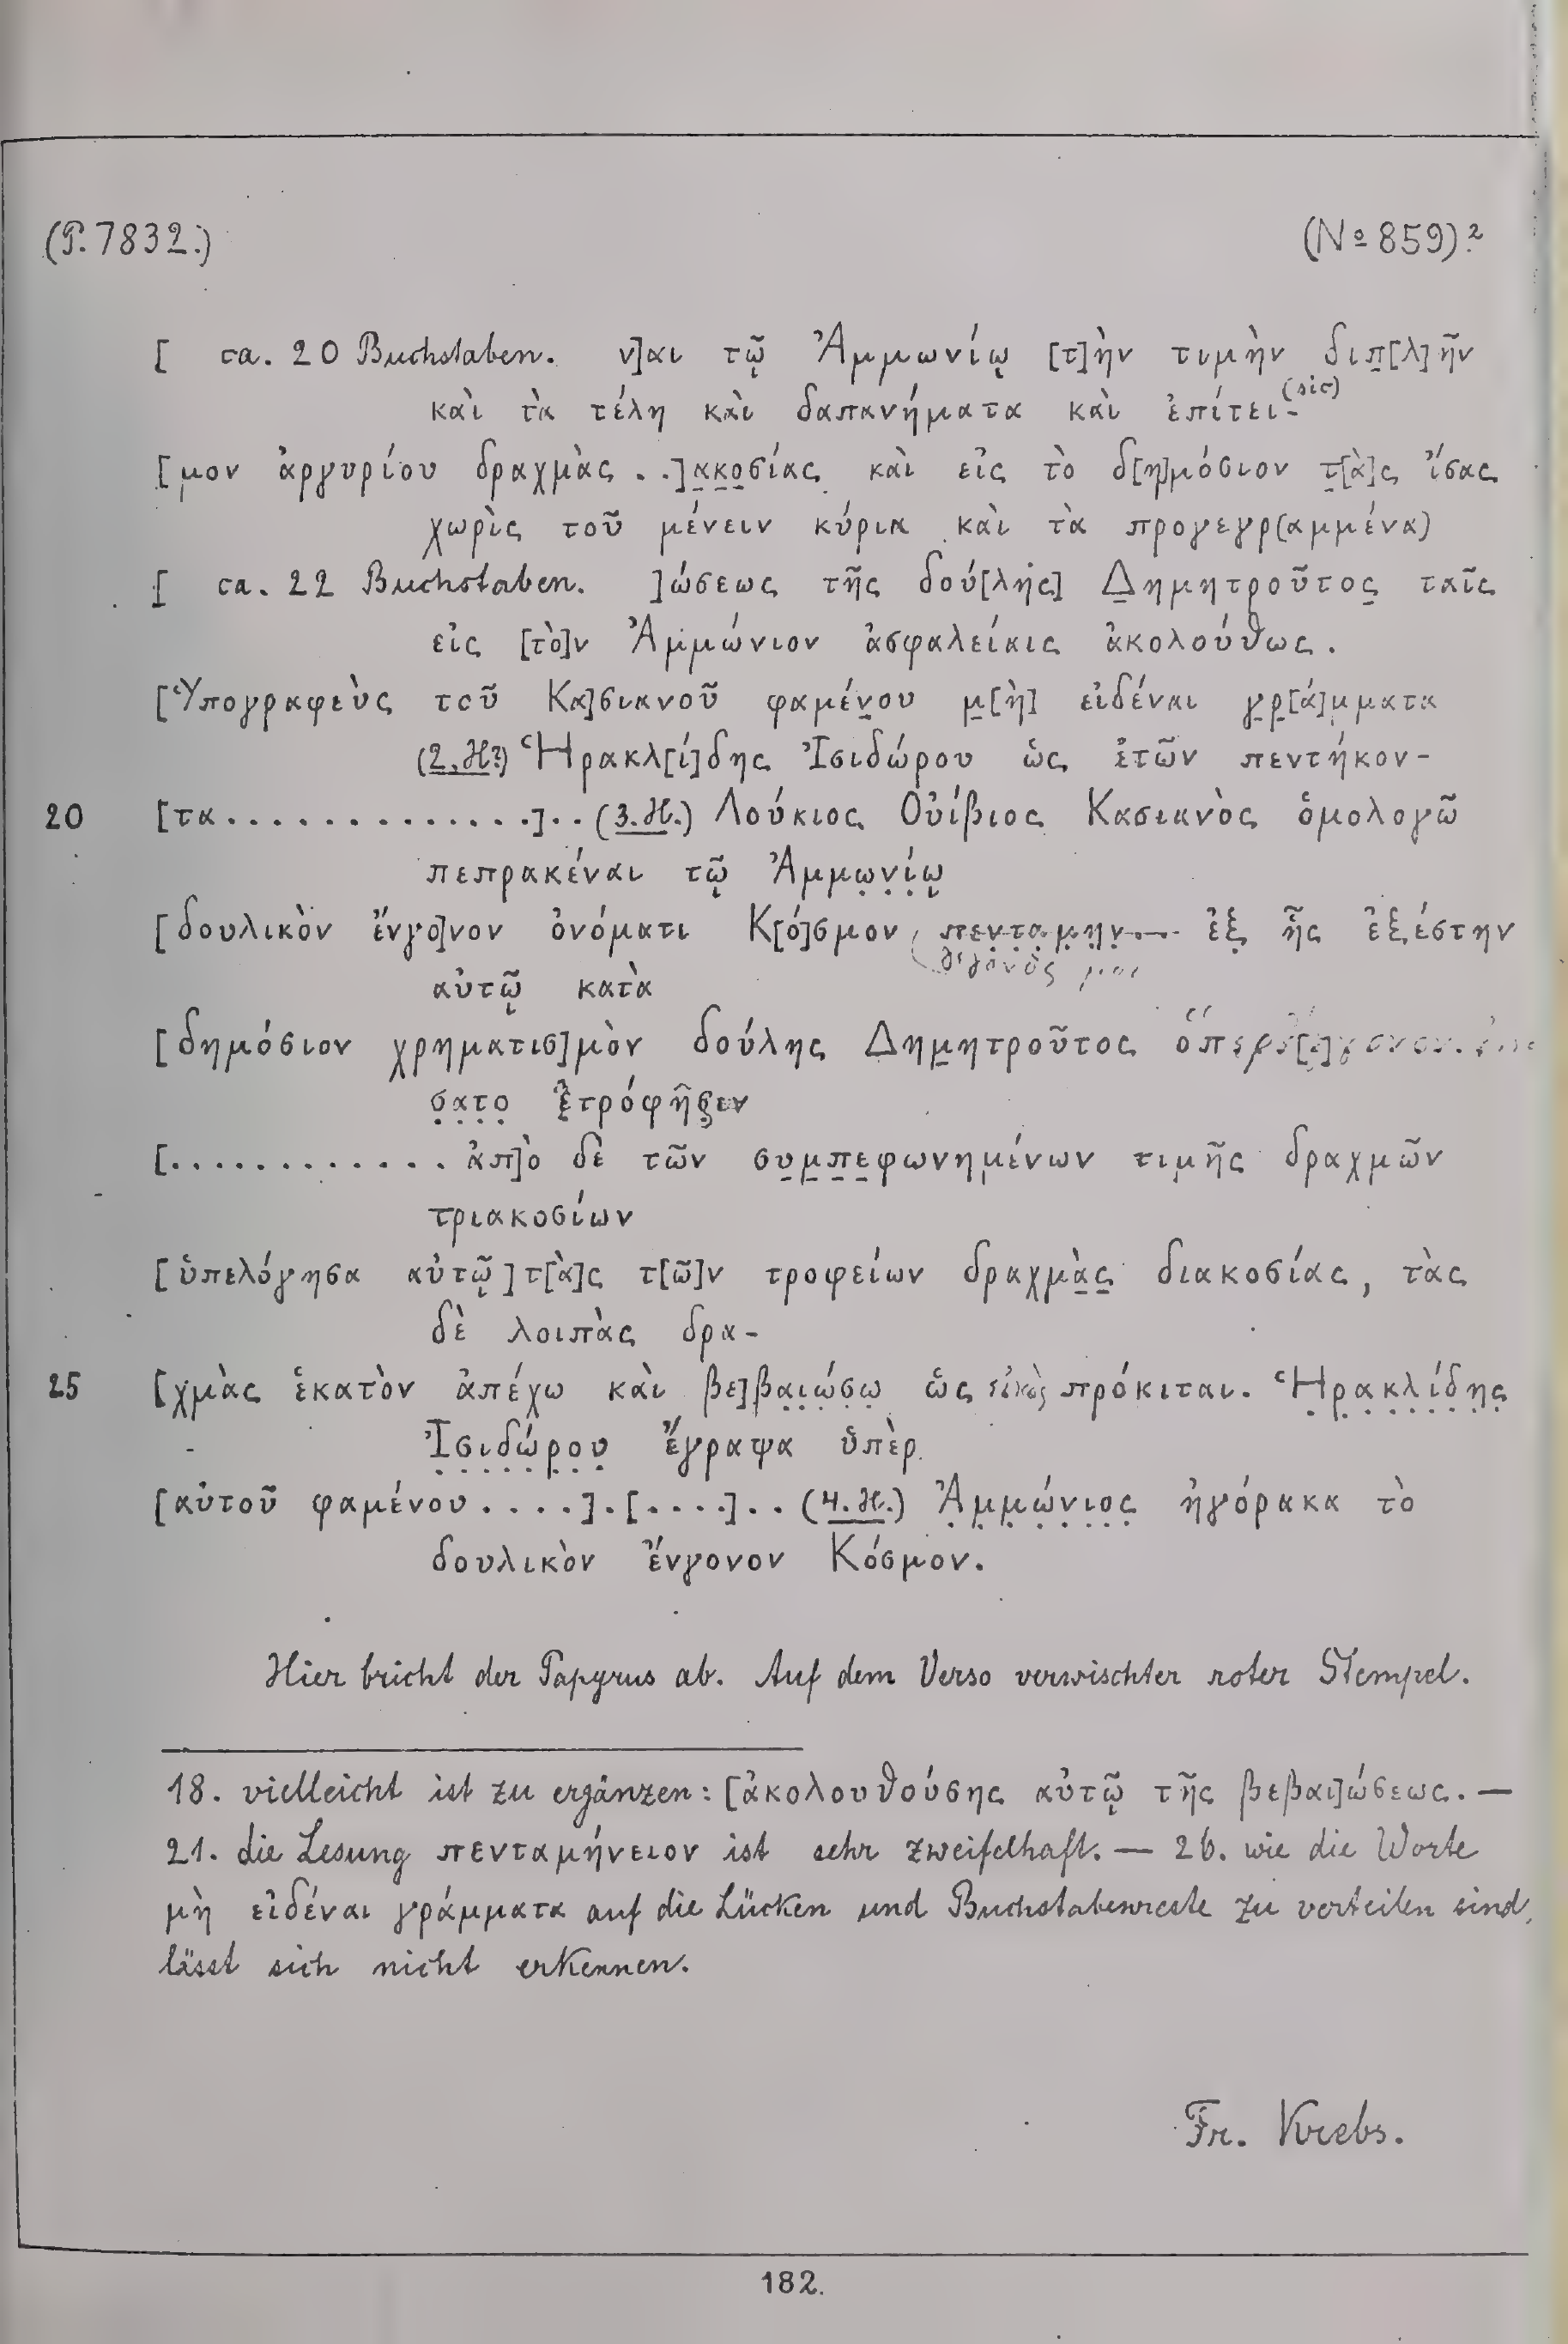 (P. 7832.) (No 859)²
[ ca. 20 Buchstaben. ν]αι τῷ Ἀμμωνίῳ [τ]ὴν τιμὴν διπ[λ]ῆν
καὶ τὰ τέλη καὶ δαπανήματα καὶ ἐπίτει- (sic)
[μον ἀργυρίου δραχμὰς . .]ακοσίας καὶ εἰς τὸ δ[η]μόσιον τ[ὰ]ς ἴσας
χωρὶς τοῦ μένειν κύρια καὶ τὰ προγεγρ(αμμένα)
[ ca. 22 Buchstaben. ]ώσεως τῆς δού[λης] Δημητροῦτος ταῖς
εἰς [τὸ]ν Ἀμμώνιον ἀσφαλείαις ἀκολούθως.
[Ὑπογραφεὺς τοῦ Κα]σιανοῦ φαμένου μ[ὴ] εἰδέναι γρ[ά]μματα
(2. H.) Ἡρακλ[ί]δης Ἰσιδώρου ὡς ἐτῶν πεντήκον-
20 [τα. . . . . . . . . . . . . .]. . (3. H.) Λούκιος Οὐίβιος Κασιανὸς ὁμολογῶ
πεπρακέναι τῷ Ἀμμωνίῳ
[δουλικὸν ἔνγο]νον ὀνόματι Κ[ό]σμον πενταμην.— ἐξ ἧς ἐξέστην
αὐτῷ κατὰ
[δημόσιον χρηματισ]μὸν δούλης Δημητροῦτος
σατο ἐτρόφησεν
[. . . . . . . . . . . . ἀπ]ὸ δὲ τῶν συμπεφωνημένων τιμῆς δραχμῶν
τριακοσίων
[ὑπελόγησα αὐτῷ] τ[ὰ]ς τ[ῶ]ν τροφείων δραχμὰς διακοσίας, τὰς
δὲ λοιπὰς δρα-
25 [χμὰς ἑκατὸν ἀπέχω καὶ βε]βαιώσω ὡς πρόκιται. Ἡρακλίδης
Ἰσιδώρου ἔγραψα ὑπὲρ
[αὐτοῦ φαμένου . . . .] . [. . . .] . . (4. H.) Ἀμμώνιος ἠγόρακα τὸ
δουλικὸν ἔνγονον Κόσμον.
Hier bricht der Papyrus ab. Auf dem Verso verwischter roter Stempel.
18. vielleicht ist zu ergänzen: [ἀκολουθούσης αὐτῷ τῆς βεβαι]ώσεως. —
21. die Lesung πενταμήνειον ist sehr zweifelhaft. — 26. wie die Worte
μὴ εἰδέναι γράμματα auf die Lücken und Buchstabenreste zu verteilen sind,
lässt sich nicht erkennen.
Fr. Krebs.
182.